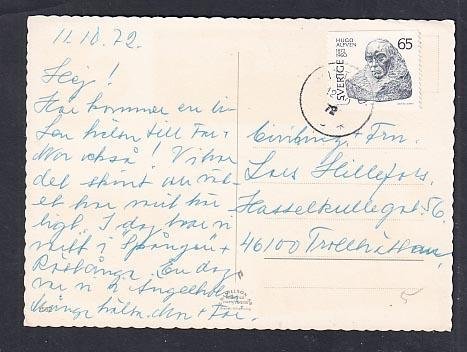 11.10.72.
Hej!
Här kommer en li-
ten hälsn till Far+
Mor också! Vi har
det skönt
et har varit här-
ligt. I dag har vi
varit i Spången +
Röstånga. En dag
var vi i Ängelholm
Många hälsn. Mor + Far.
HUGO
ALFVÉN
1872
1960
65
SVERIGE
72
Civiling + Fru
Lars Hillefors.
Hasselkullegat. 56.
46100 Trollhättan
5